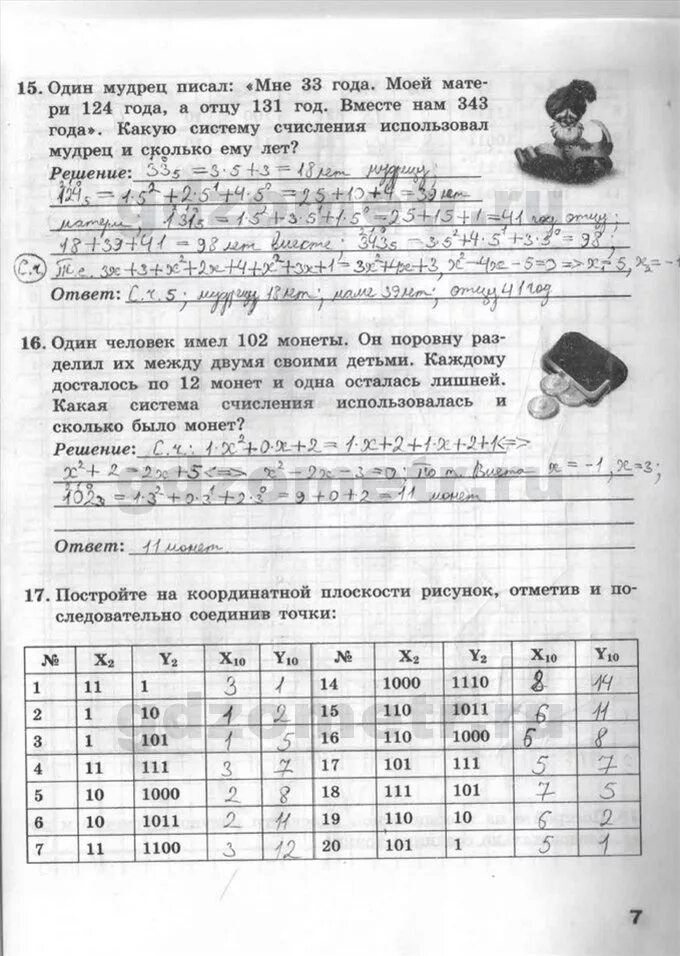 15. Один мудрец писал: «Мне 33 года. Моей мате-
ри 124 года, а отцу 131 год. Вместе нам 343
года». Какую систему счисления использовал
мудрец и сколько ему лет?
Решение: 33₅ = 3·5+3 = 18 лет мудрецу;
124₅ = 1·5²+2·5¹+4·5⁰ = 25+10+4 = 39 лет
матери, 131₅ = 1·5²+3·5¹+1·5⁰ = 25+15+1 = 41 год отцу;
18+39+41 = 98 лет вместе: 343₅ = 3·5²+4·5¹+3·5⁰ = 98;
С.ч. Т.е. 3x+3+x²+2x+4+x²+3x+1 = 3x²+4x+3, x²-4x-5=0 => x₁=5, x₂=-1
Ответ: С.ч. 5; мудрецу 18 лет; маме 39 лет; отцу 41 год
16. Один человек имел 102 монеты. Он поровну раз-
делил их между двумя своими детьми. Каждому
досталось по 12 монет и одна осталась лишней.
Какая система счисления использовалась и
сколько было монет?
Решение: С.ч: 1·x²+0·x+2 = 1·x+2+1·x+2+1 <=>
x²+2 = 2x+5 <=> x²-2x-3=0; по т. Виета x=-1, x=3;
102₃ = 1·3²+0·3¹+2·3⁰ = 9+0+2 = 11 монет
Ответ: 11 монет
17. Постройте на координатной плоскости рисунок, отметив и по-
следовательно соединив точки:
№ X₂ Y₂ X₁₀ Y₁₀ № X₂ Y₂ X₁₀ Y₁₀
1 11 1 3 1 14 1000 1110 8 14
2 1 10 1 2 15 110 1011 6 11
3 1 101 1 5 16 110 1000 6 8
4 11 111 3 7 17 101 111 5 7
5 10 1000 2 8 18 111 101 7 5
6 10 1011 2 11 19 110 10 6 2
7 11 1100 3 12 20 101 1 5 1
7
gdzometr.ru
gdzometr.ru
gdzometr.ru